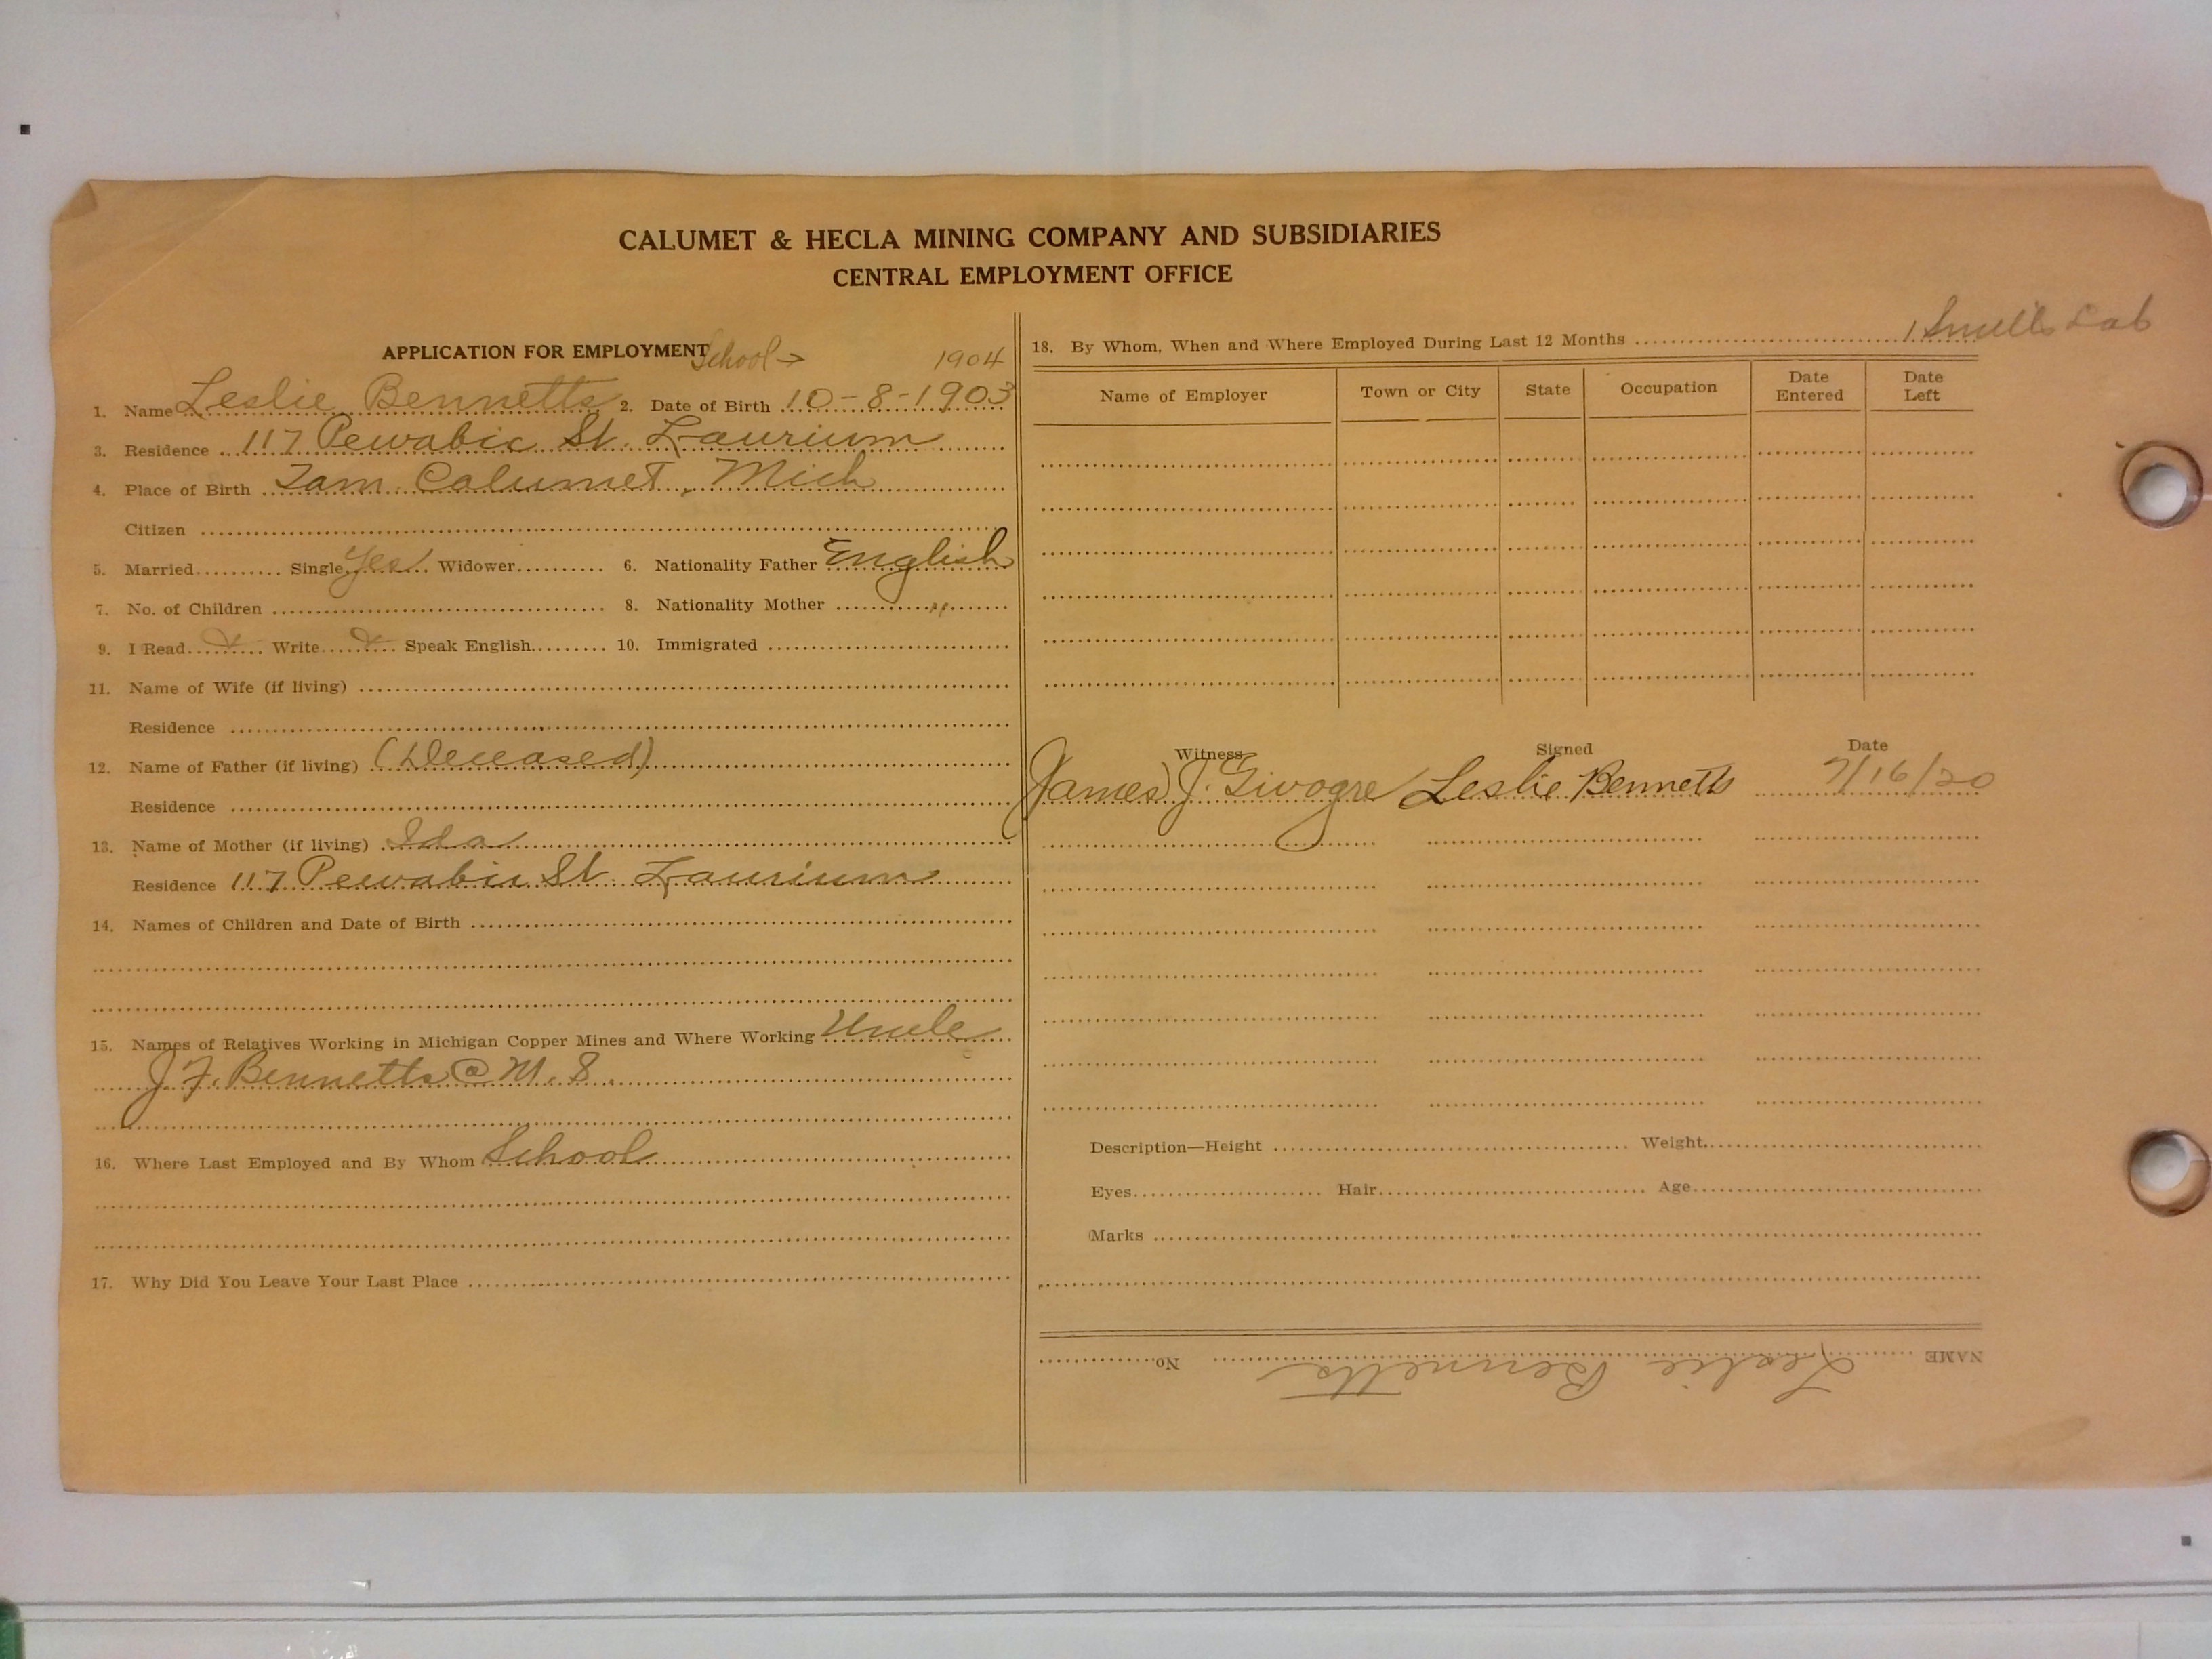 CALUMET & HECLA MINING COMPANY AND SUBSIDIARIES
CENTRAL EMPLOYMENT OFFICE
APPLICATION FOR EMPLOYMENT School → 1904
1. Name Leslie Bennetts 2. Date of Birth 10-8-1903
3. Residence 117 Pewabic St. Laurium
4. Place of Birth Tam. Calumet, Mich
Citizen
5. Married Single Yes Widower 6. Nationality Father English
7. No. of Children 8. Nationality Mother "
9. I Read Write Speak English 10. Immigrated
11. Name of Wife (if living)
Residence
12. Name of Father (if living) (Deceased)
Residence
13. Name of Mother (if living) Ida
Residence 117 Pewabic St. Laurium
14. Names of Children and Date of Birth
15. Names of Relatives Working in Michigan Copper Mines and Where Working Uncle
J. F. Bennetts @ M. S.
16. Where Last Employed and By Whom School
17. Why Did You Leave Your Last Place
18. By Whom, When and Where Employed During Last 12 Months Lab
Name of Employer Town or City State Occupation Date Entered Date Left
Witness Signed Date
James J. Leslie Bennetts 7/16/20
Description—Height Weight
Eyes Hair Age
Marks
NAME Leslie Bennetts No.